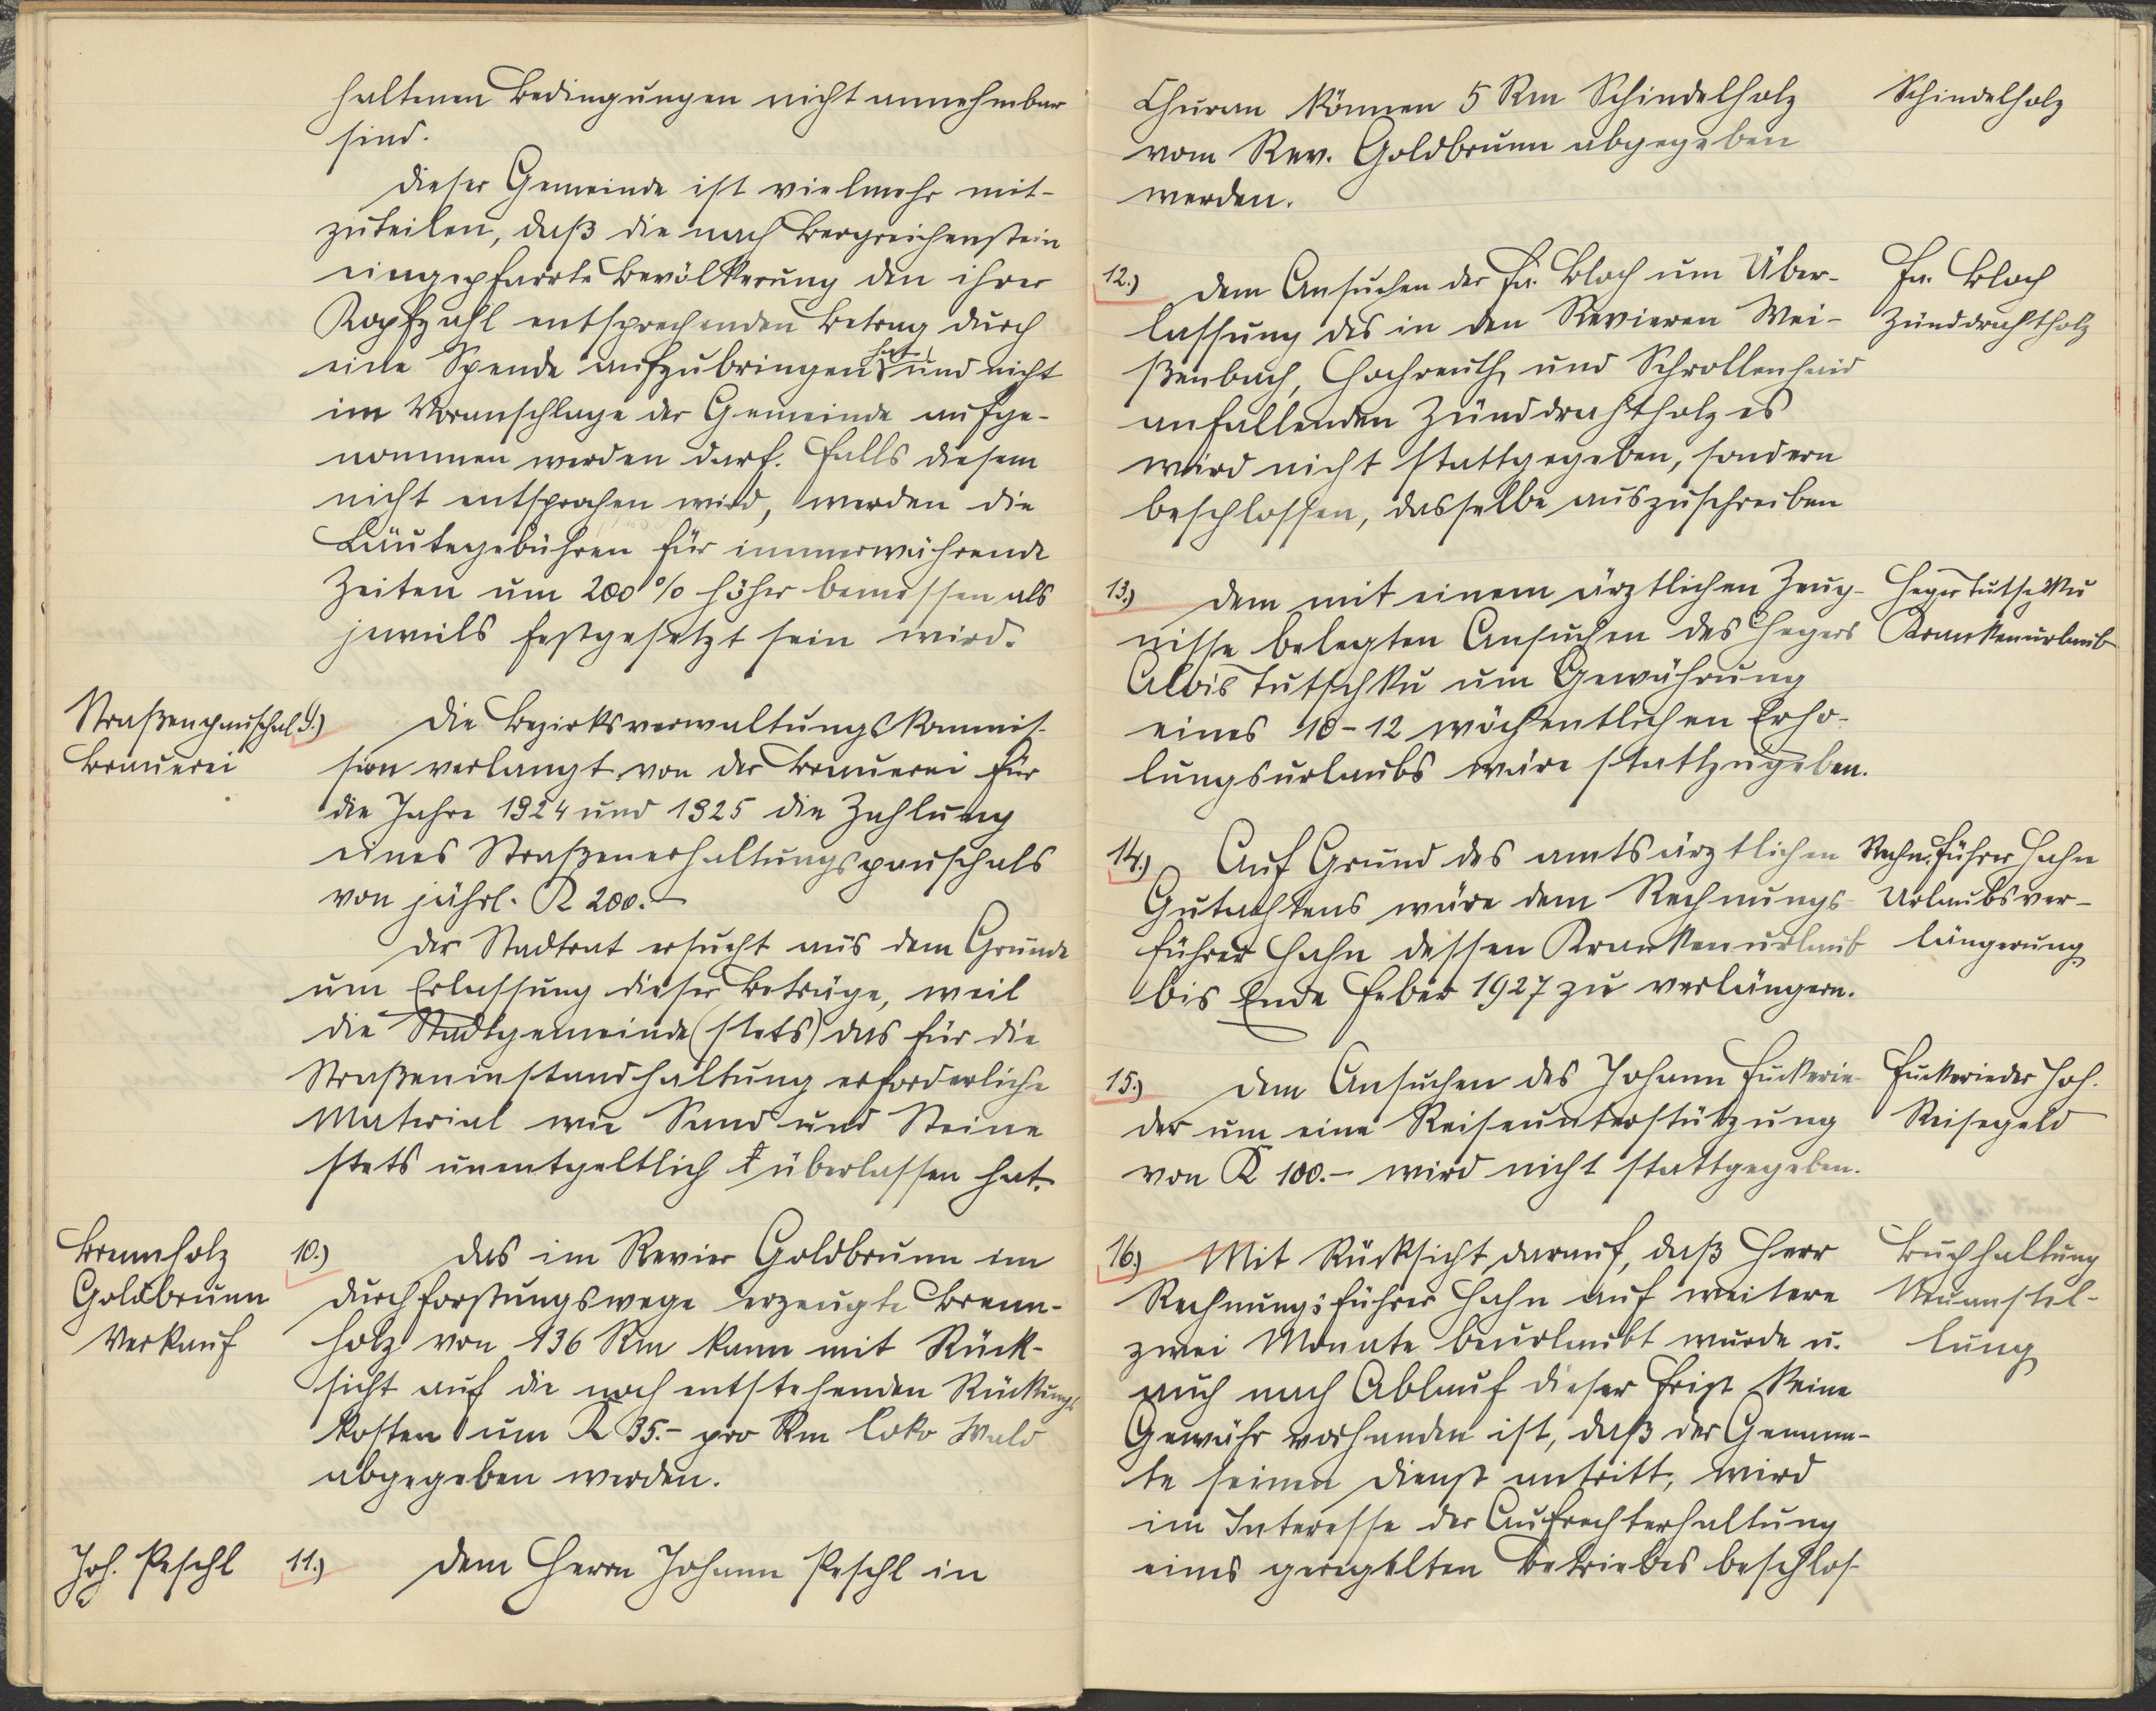 haltenen Bedingungen nicht annehmbar
sind.
Dieser Gemeinde ist vielmehr mit-
zuteilen, daß die nach Bergreichenstein
eingepfarrte Bevölkerung den ihrer
Kopfzahl entsprechenden Betrag durch
eine Spende aufzubringen hat und nicht
im Voranschlage der Gemeinde aufge-
nommen werden darf. Falls diesem
nicht entsprochen wird, werden die
Läutegebühren für immerwährende
Zeiten um 200% höher bemessen als
jeweils festgesetzt sein wird.
Straßenpauschal
Brauerei
9.) Die Bezirksverwaltungskommis-
sion verlangt von der Brauerei für
die Jahre 1924 und 1925 die Zahlung
eines Straßenerhaltungspauschals
von jährl. K 200.-
Der Stadtrat ersucht aus dem Grunde
um Erlassung dieser Beträge, weil
die Stadtgemeinde (stets) das für die
Straßeninstandhaltung erforderliche
Material wie Sand und Steine
stets unentgeltlich überlassen hat.
Brennholz
Goldbrunn
Verkauf
10.) Das im Revier Goldbrunn im
Durchforstungswege erzeugte Brenn-
holz von 136 Rm kann mit Rück-
sicht auf die noch entstehenden Rückungs
kosten um K 35.- pro Rm loko Wald
abgegeben werden.
Joh. Peschl
11.) Dem Herrn Johann Peschl in
Churan können 5 Rm Schindelholz
vom Rev. Goldbrunn abgegeben
werden.
Schindelholz
12.) Dem Ansuchen der Fa. Bloch um Über-
lassung des in den Revieren Wei-
ßenbach, Hochreuth und Schrollenhaid
anfallenden Zünddrahtholzes
wird nicht stattgegeben, sondern
beschlossen, dasselbe auszuschreiben
Fa. Bloch
Zünddrahtholz
13.) Dem mit einem ärztlichen Zeug-
nisse belegten Ansuchen des Hegers
Alois Tutschku um Gewährung
eines 10-12 wöchentlichen Erho-
lungsurlaubs wäre stattzugeben.
Heger Tutschku
Krankenurlaub
14.) Auf Grund des amtsärztlichen
Gutachtens wäre dem Rechnungs-
führer Hahn dessen Krankenurlaub
bis Ende Feber 1927 zu verlängern.
Rechn.führer Hahn
Urlaubsver-
längerung
15.) Dem Ansuchen des Johann Fuckerie-
der um eine Reiseunterstützung
von K 100.- wird nicht stattgegeben.
Fuckerieder Joh.
Reisegeld
16.) Mit Rücksicht darauf, daß Herr
Rechnungsführer Hahn auf weitere
zwei Monate beurlaubt wurde u.
auch nach Ablauf dieser Frist keine
Gewähr vorhanden ist, daß der Genann-
te seinen Dienst antritt, wird
im Interesse der Aufrechterhaltung
eines geregelten Betriebes beschlos-
Buchhaltung
Neuanstel-
lung